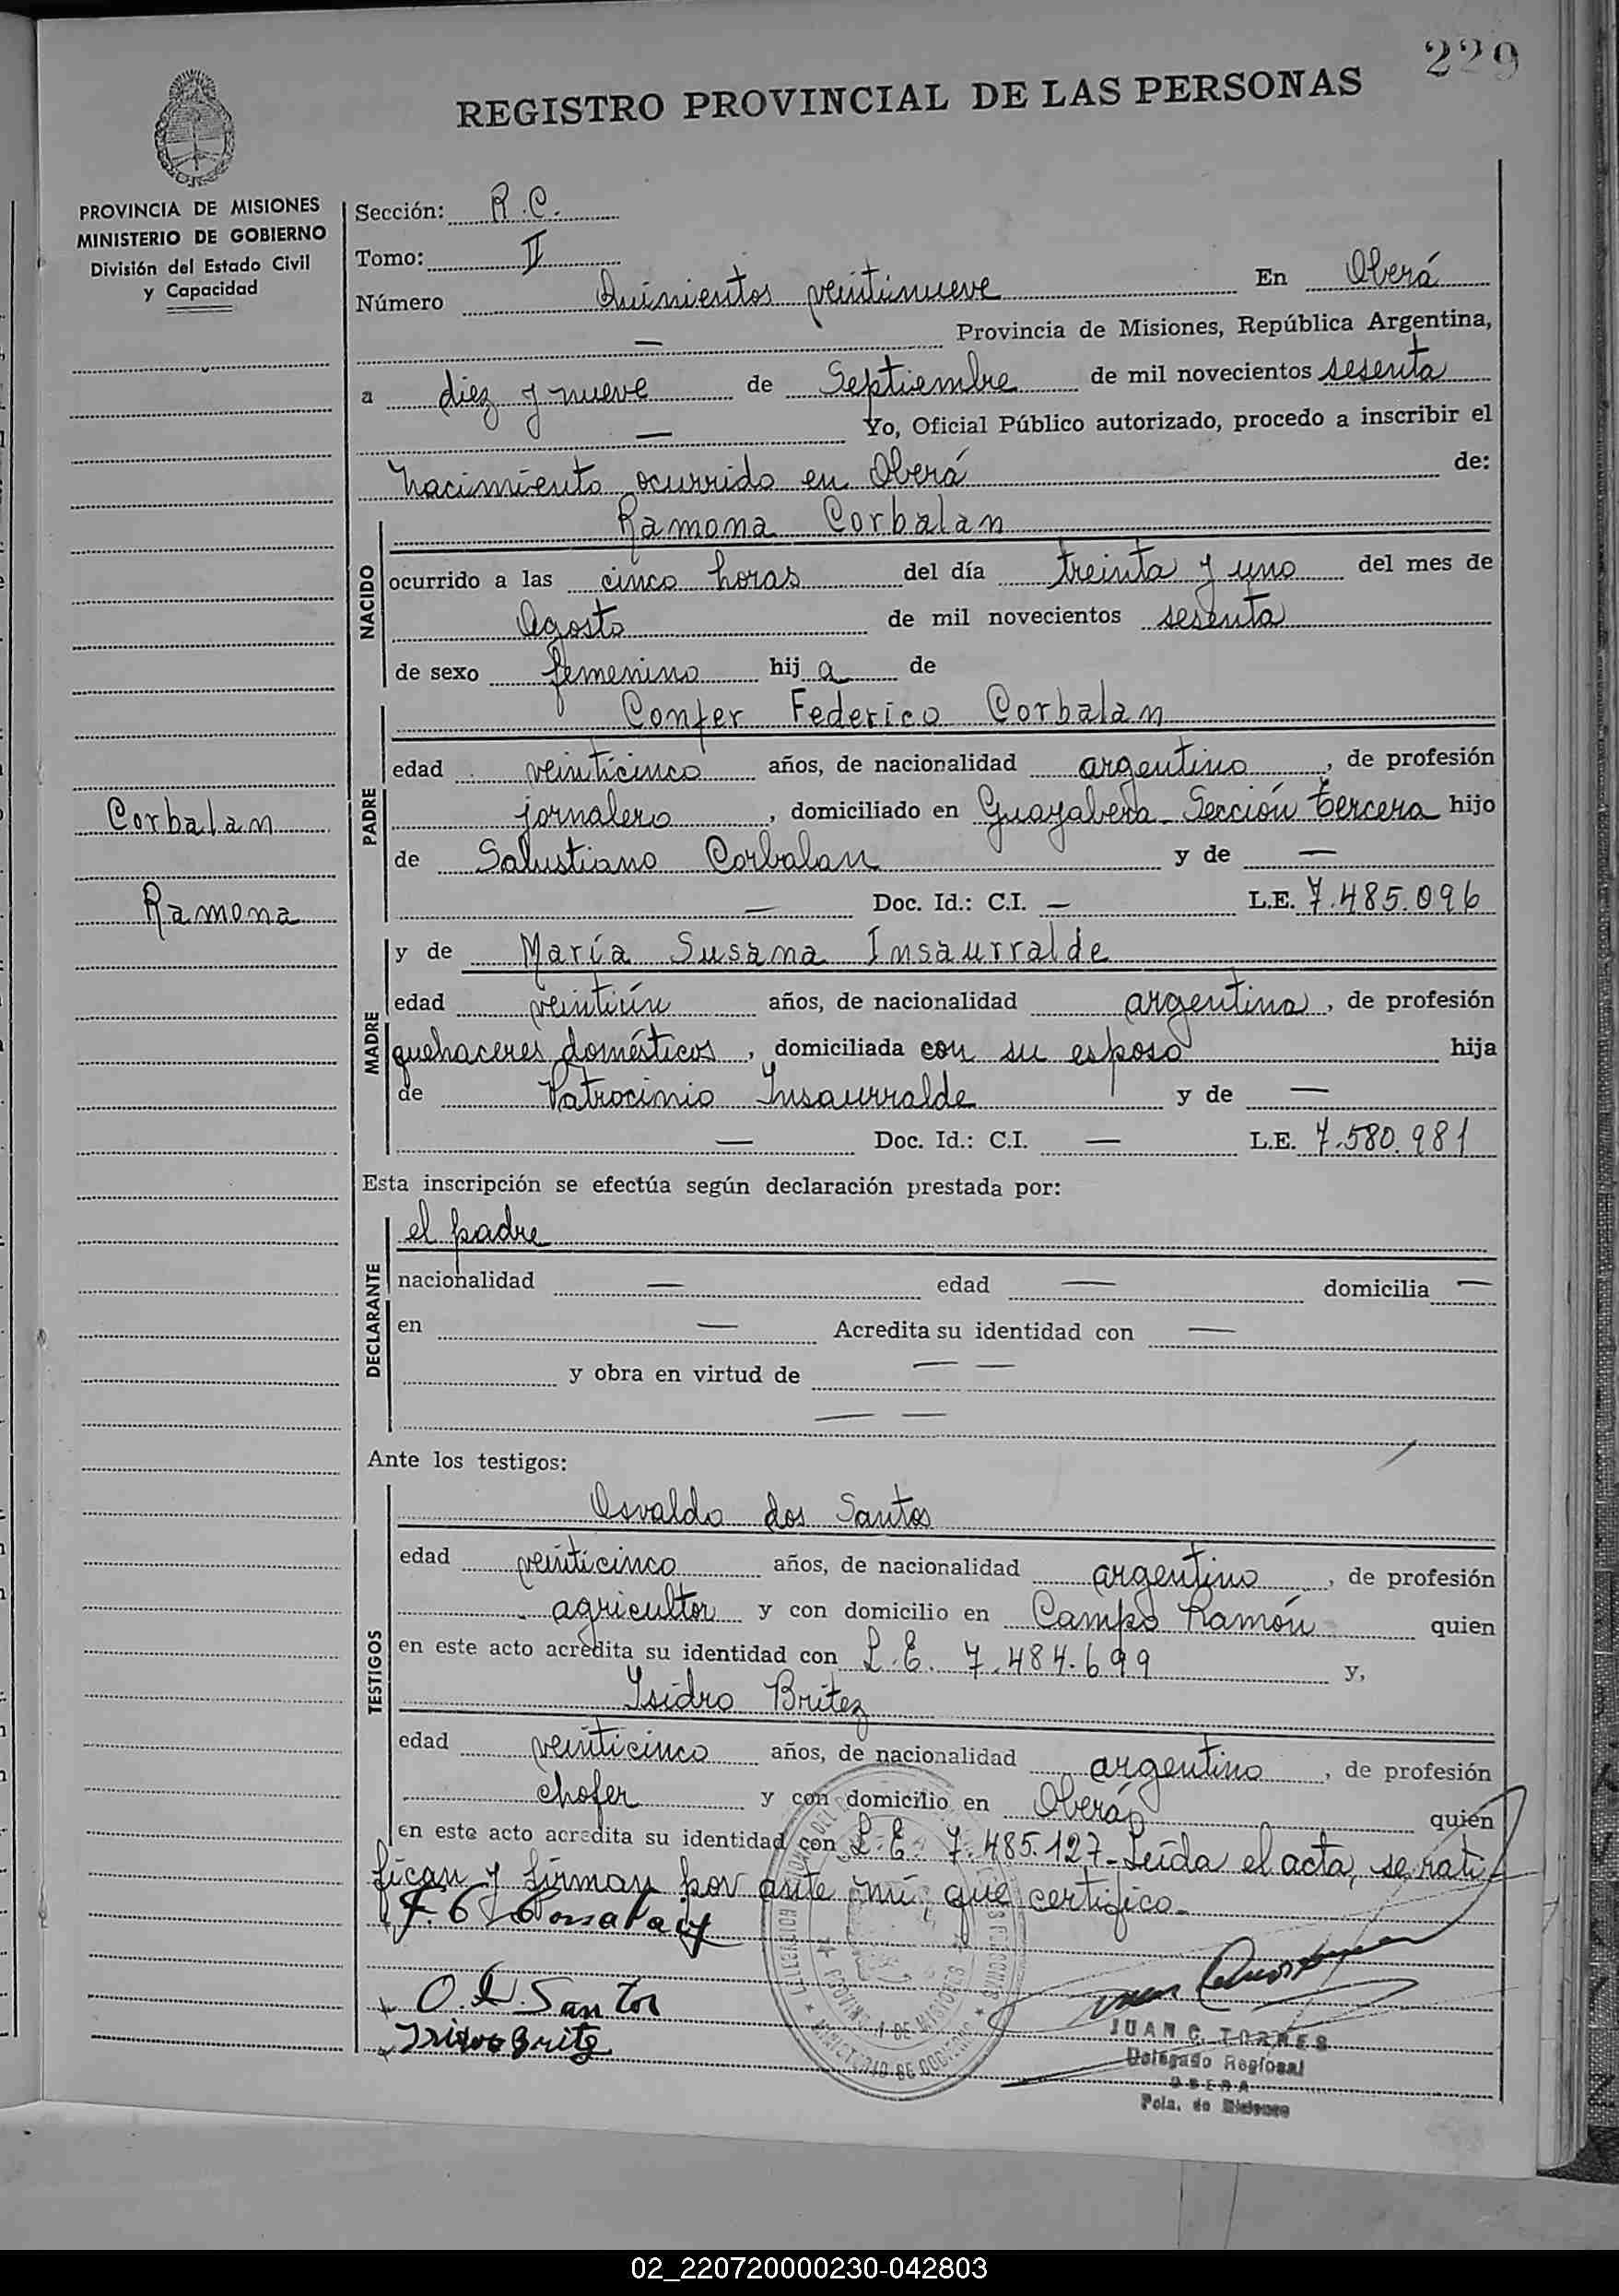 229
REGISTRO PROVINCIAL DE LAS PERSONAS
PROVINCIA DE MISIONES
MINISTERIO DE GOBIERNO
División del Estado Civil
y Capacidad
Sección: R.C.
Tomo: II
Número Quinientos veintinueve En Oberá
— Provincia de Misiones, República Argentina,
a diez y nueve de Septiembre de mil novecientos sesenta
— Yo, Oficial Público autorizado, procedo a inscribir el
nacimiento ocurrido en Oberá de:
Ramona Corbalan
NACIDO
ocurrido a las cinco horas del día treinta y uno del mes de
Agosto de mil novecientos sesenta
de sexo femenino hij a de
Confer Federico Corbalan
PADRE
edad veinticinco años, de nacionalidad argentino, de profesión
jornalero, domiciliado en Guayabera - Sección tercera hijo
de Salustiano Corbalan y de —
— Doc. Id.: C.I. — L.E. 7.485.096
Corbalan
Ramona
y de María Susana Insaurralde
MADRE
edad veintiún años, de nacionalidad argentina, de profesión
quehaceres domésticos, domiciliada con su esposo hija
de Patrocinio Insaurralde y de —
— Doc. Id.: C.I. — L.E. 7.580.981
Esta inscripción se efectúa según declaración prestada por:
el padre
DECLARANTE
nacionalidad — edad — domicilia —
en — Acredita su identidad con —
y obra en virtud de — —
— —
Ante los testigos:
Osvaldo dos Santos
TESTIGOS
edad veinticinco años, de nacionalidad argentino, de profesión
agricultor y con domicilio en Campo Ramón quien
en este acto acredita su identidad con L.E. 7.484.699 y,
Isidro Britez
edad veinticinco años, de nacionalidad argentino, de profesión
chofer y con domicilio en Oberá quien
en este acto acredita su identidad con L.E. 7.485.127- Leída el acta, se rati-
fican y firman por ante mí, que certifico.-
O. D. Santos
Isidro Britez
JUAN C. TORRES
Delegado Regional
OBERA
Pcia. de Misiones
02_220720000230-042803